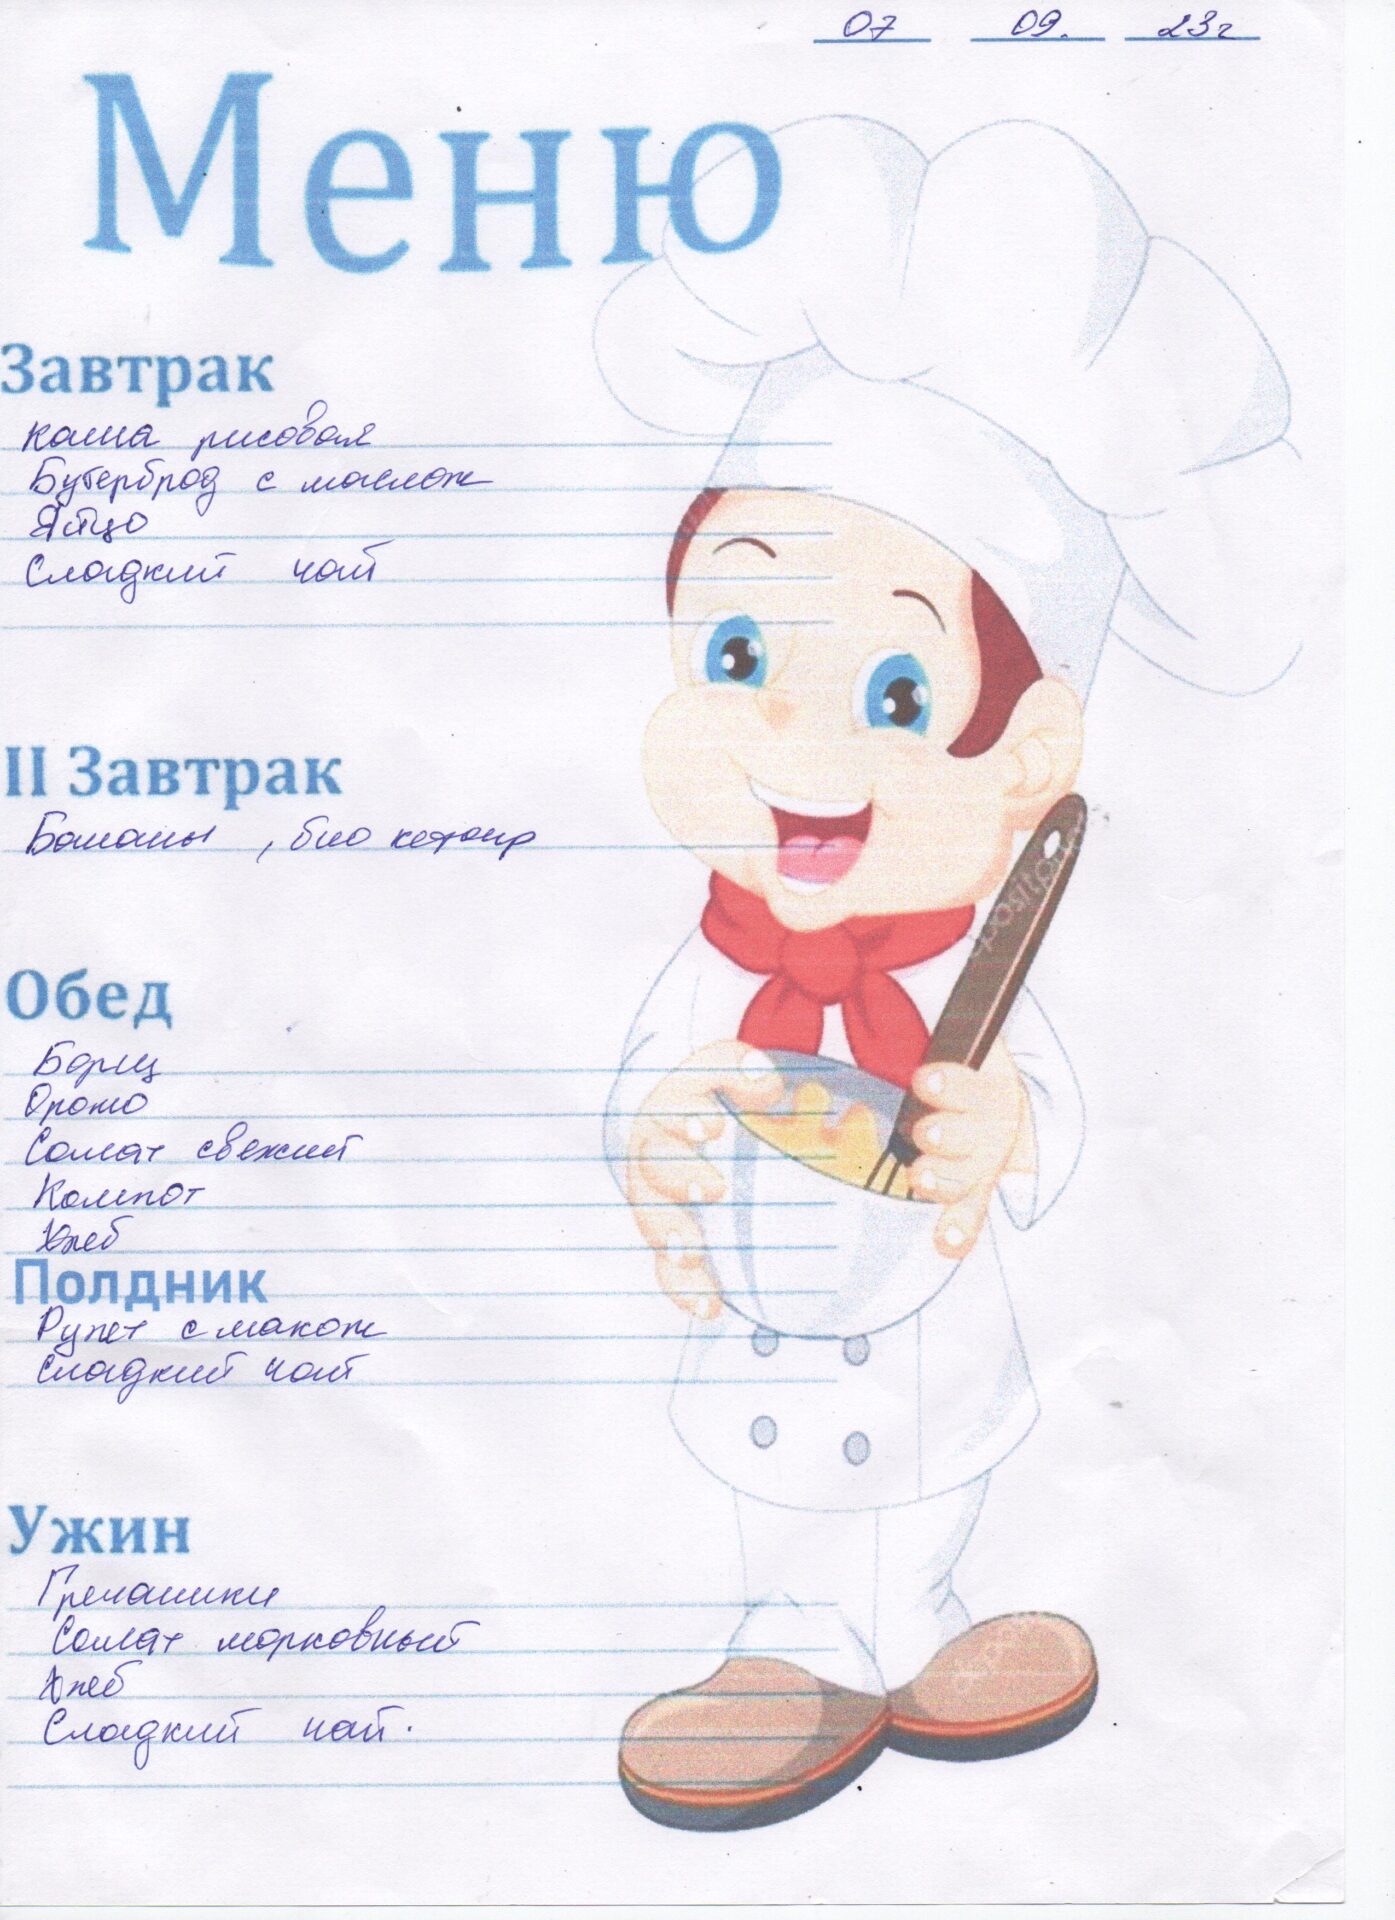 07 09. 23г
Меню
Завтрак
каша рисовая
Бутерброд с маслом
Яйцо
Сладкий чай
II Завтрак
Бананы , био кефир
Обед
Борщ
Оромо
Салат свежий
Компот
Хлеб
Полдник
Рулет с маком
Сладкий чай
Ужин
Гречаники
Салат морковный
Хлеб
Сладкий чай.
depositphotos